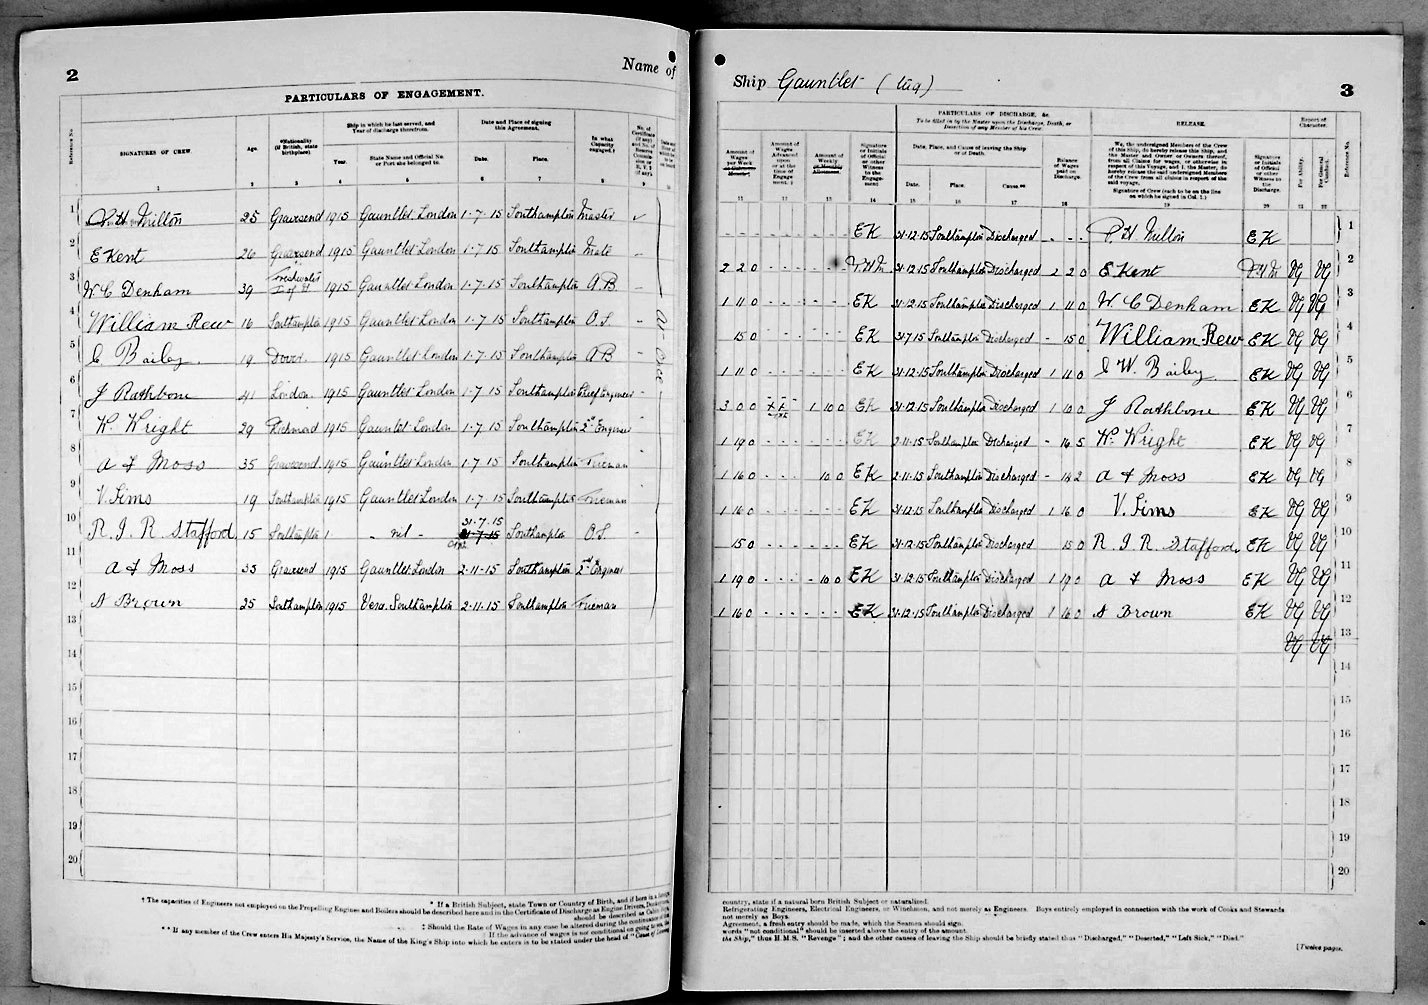 2
Name of
PARTICULARS OF ENGAGEMENT.
Reference No.
SIGNATURES OF CREW.
Age.
*Nationality (if British, state birthplace).
Ship in which he last served, and Year of discharge therefrom.
Year.
State Name and Official No. or Port she belonged to.
Date and Place of signing this Agreement.
Date.
Place.
In what Capacity engaged.†
No. of Certificate (if any)
1 2 3 4 5 6 7 8 9 10
1 P. H. Millon 25 Gravesend 1915 Gauntlet London 1·7·15 Southampton Master
2 E Kent 26 Gravesend 1915 Gauntlet London 1·7·15 Southampton Mate -
3 W C Denham 39 Freshwater I of W 1915 Gauntlet London 1·7·15 Southampton A.B. -
4 William Rew 16 Southampton 1915 Gauntlet London 1·7·15 Southampton O.S. -
5 Bailey 19 Dover 1915 Gauntlet London 1·7·15 Southampton AB -
6 J Rathbone 41 London 1915 Gauntlet London 1·7·15 Southampton Chief Engineer -
7 W. Wright 29 Richmond 1915 Gauntlet London 1·7·15 Southampton 2nd Engineer
8 A F Moss 35 Gravesend 1915 Gauntlet London 1·7·15 Southampton Fireman
9 V. Sims 19 Southampton 1915 Gauntlet London 1·7·15 Southampton Fireman
10 R. J. R. Stafford 15 Southampton - nil - 31·7·15 Southampton O.S. -
11 A F Moss 35 Gravesend 1915 Gauntlet London 2·11·15 Southampton 2nd Engineer
12 A Brown 25 Southampton 1915 Vera. Southampton 2·11·15 Southampton Fireman
at once
13
14
15
16
17
18
19
20
* If a British Subject, state Town or Country of Birth, and if born in a
† The capacities of Engineers not employed on the Propelling Engines and Boilers should be described here and in the Certificate of Discharge as Engine Drivers,
should be described as Cabin
‡ Should the Rate of Wages in any case be altered during the continuance
† If the advance of wages is not conditional on going to sea
** If any member of the Crew enters His Majesty's Service, the Name of the King's Ship into which he enters is to be stated under the head of "Cause of
Ship Gauntlet (tug)
3
PARTICULARS OF DISCHARGE, &c.
To be filled in by the Master upon the Discharge, Death, or Desertion of any Member of his Crew.
RELEASE.
Report of Character.
Amount of Wages per Week
Amount of Wages Advanced upon or at the time of Engagement.‡
Amount of Weekly or Monthly Allotment.
Signature or Initials of Official or other Witness to the Engagement
Date, Place, and Cause of leaving the Ship or of Death.
Date. Place. Cause.**
Balance of Wages paid on Discharge.
We, the undersigned Members of the Crew of this Ship, do hereby release this Ship, and the Master and Owner or Owners thereof, from all Claims for wages, or otherwise in respect of this Voyage, and I, the Master, do hereby release the said undersigned Members of the Crew from all claims in respect of the said voyage.
Signature of Crew (each to be on the line on which he signed in Col. 1.)
Signature or Initials of Official or other Witness to the Discharge.
For Ability.
For General Conduct.
Reference No.
11 12 13 14 15 16 17 18 19 20 21 22
EK 31·12·15 Southampton Discharged - - - P. H. Millon EK 1
2 2 0 P.H.M 31·12·15 Southampton Discharged 2 2 0 E Kent P.H.M VG VG 2
1 11 0 EK 31·12·15 Southampton Discharged 1 11 0 W C Denham EK VG VG 3
15 0 EK 31·7·15 Southampton Discharged - 15 0 William Rew EK VG VG 4
1 11 0 EK 31·12·15 Southampton Discharged 1 11 0 W. Bailey EK VG VG 5
3 0 0 1 10 0 EK 31·12·15 Southampton Discharged 1 10 0 J Rathbone EK VG VG 6
1 19 0 EK 2·11·15 Southampton Discharged - 16 5 W. Wright EK VG VG 7
1 16 0 10 0 EK 2·11·15 Southampton Discharged A F Moss EK VG VG 8
1 16 0 EK 31·12·15 Southampton Discharged 1 16 0 V. Sims EK VG VG 9
15 0 EK 31·12·15 Southampton Discharged 15 0 R. J. R. Stafford EK VG VG 10
1 19 0 10 0 EK 31·12·15 Southampton Discharged 1 19 0 A F Moss EK VG VG 11
1 16 0 EK 31·12·15 Southampton Discharged 1 16 0 A Brown EK VG VG 12
VG VG 13
14
15
16
17
18
19
20
country, state if a natural born British Subject or naturalized.
Refrigerating Engineers, Electrical Engineers, or Winchmen, and not merely as Engineers. Boys entirely employed in connection with the work of Cooks and Stewards
not merely as Boys.
Agreement, a fresh entry should be made, which the Seaman should sign.
words "not conditional" should be inserted above the entry of the amount.
the Ship," thus H.M.S. "Revenge"; and the other causes of leaving the Ship should be briefly stated thus "Discharged," "Deserted," "Left Sick," "Died."
[Twelve pages.